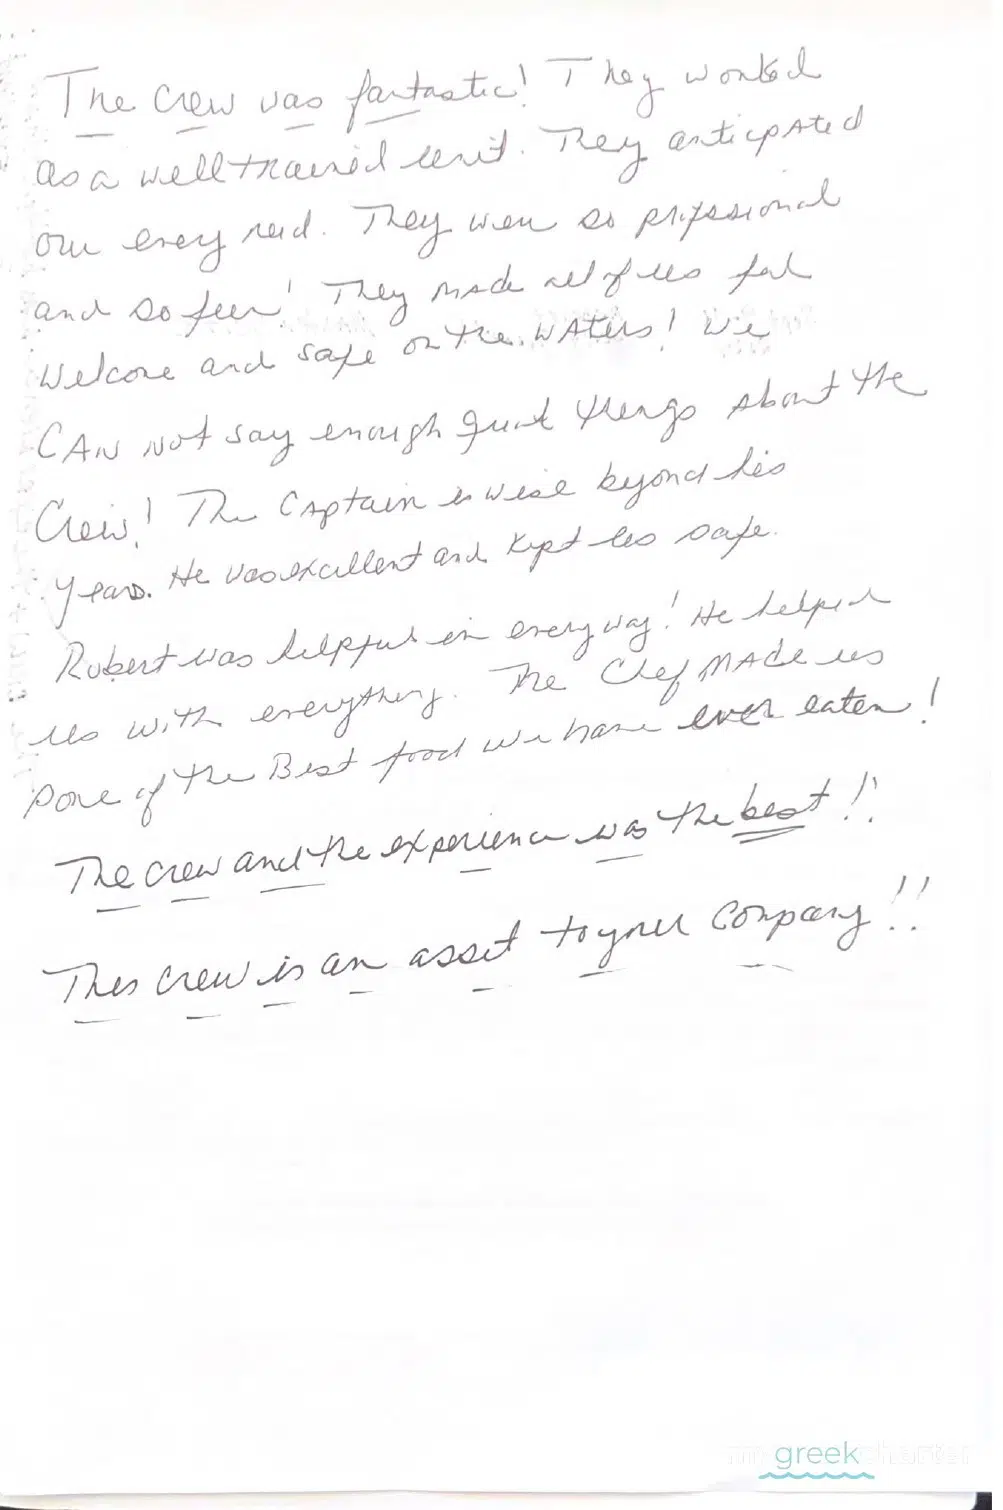 The crew was fantastic! They worked
as a well trained unit. They anticipated
our every need. They were so professional
and so fun! They made all of us feel
welcome and safe on the waters! We
CAN not say enough great things about the
Crew! The Captain is wise beyond his
years. He was excellent and kept us safe.
Robert was helpful in every way! He helped
us with everything. The Chef MADE us
some of the Best food we have ever eaten!
The crew and the experience was the best!!
This crew is an asset to your company!!
my greek charter